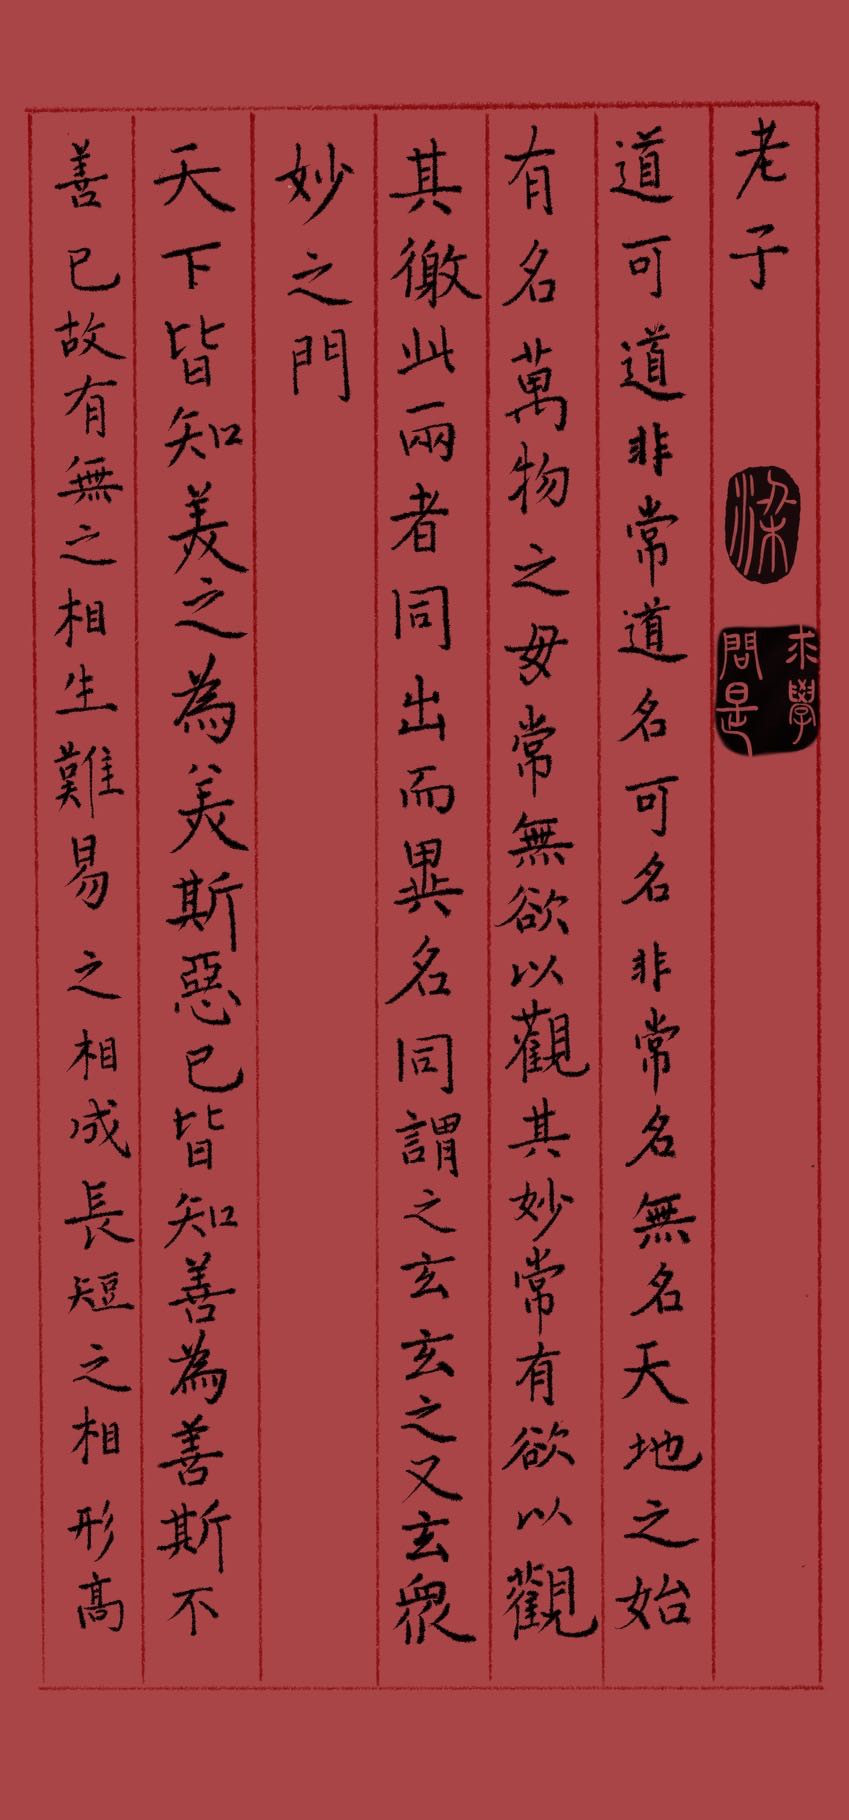 老子
梁
求學
問是
道可道非常道名可名非常名無名天地之始
有名萬物之母常無欲以觀其妙常有欲以觀
其徼此兩者同出而異名同謂之玄玄之又玄眾
妙之門
天下皆知美之為美斯惡已皆知善為善斯不
善已故有無之相生難易之相成長短之相形高